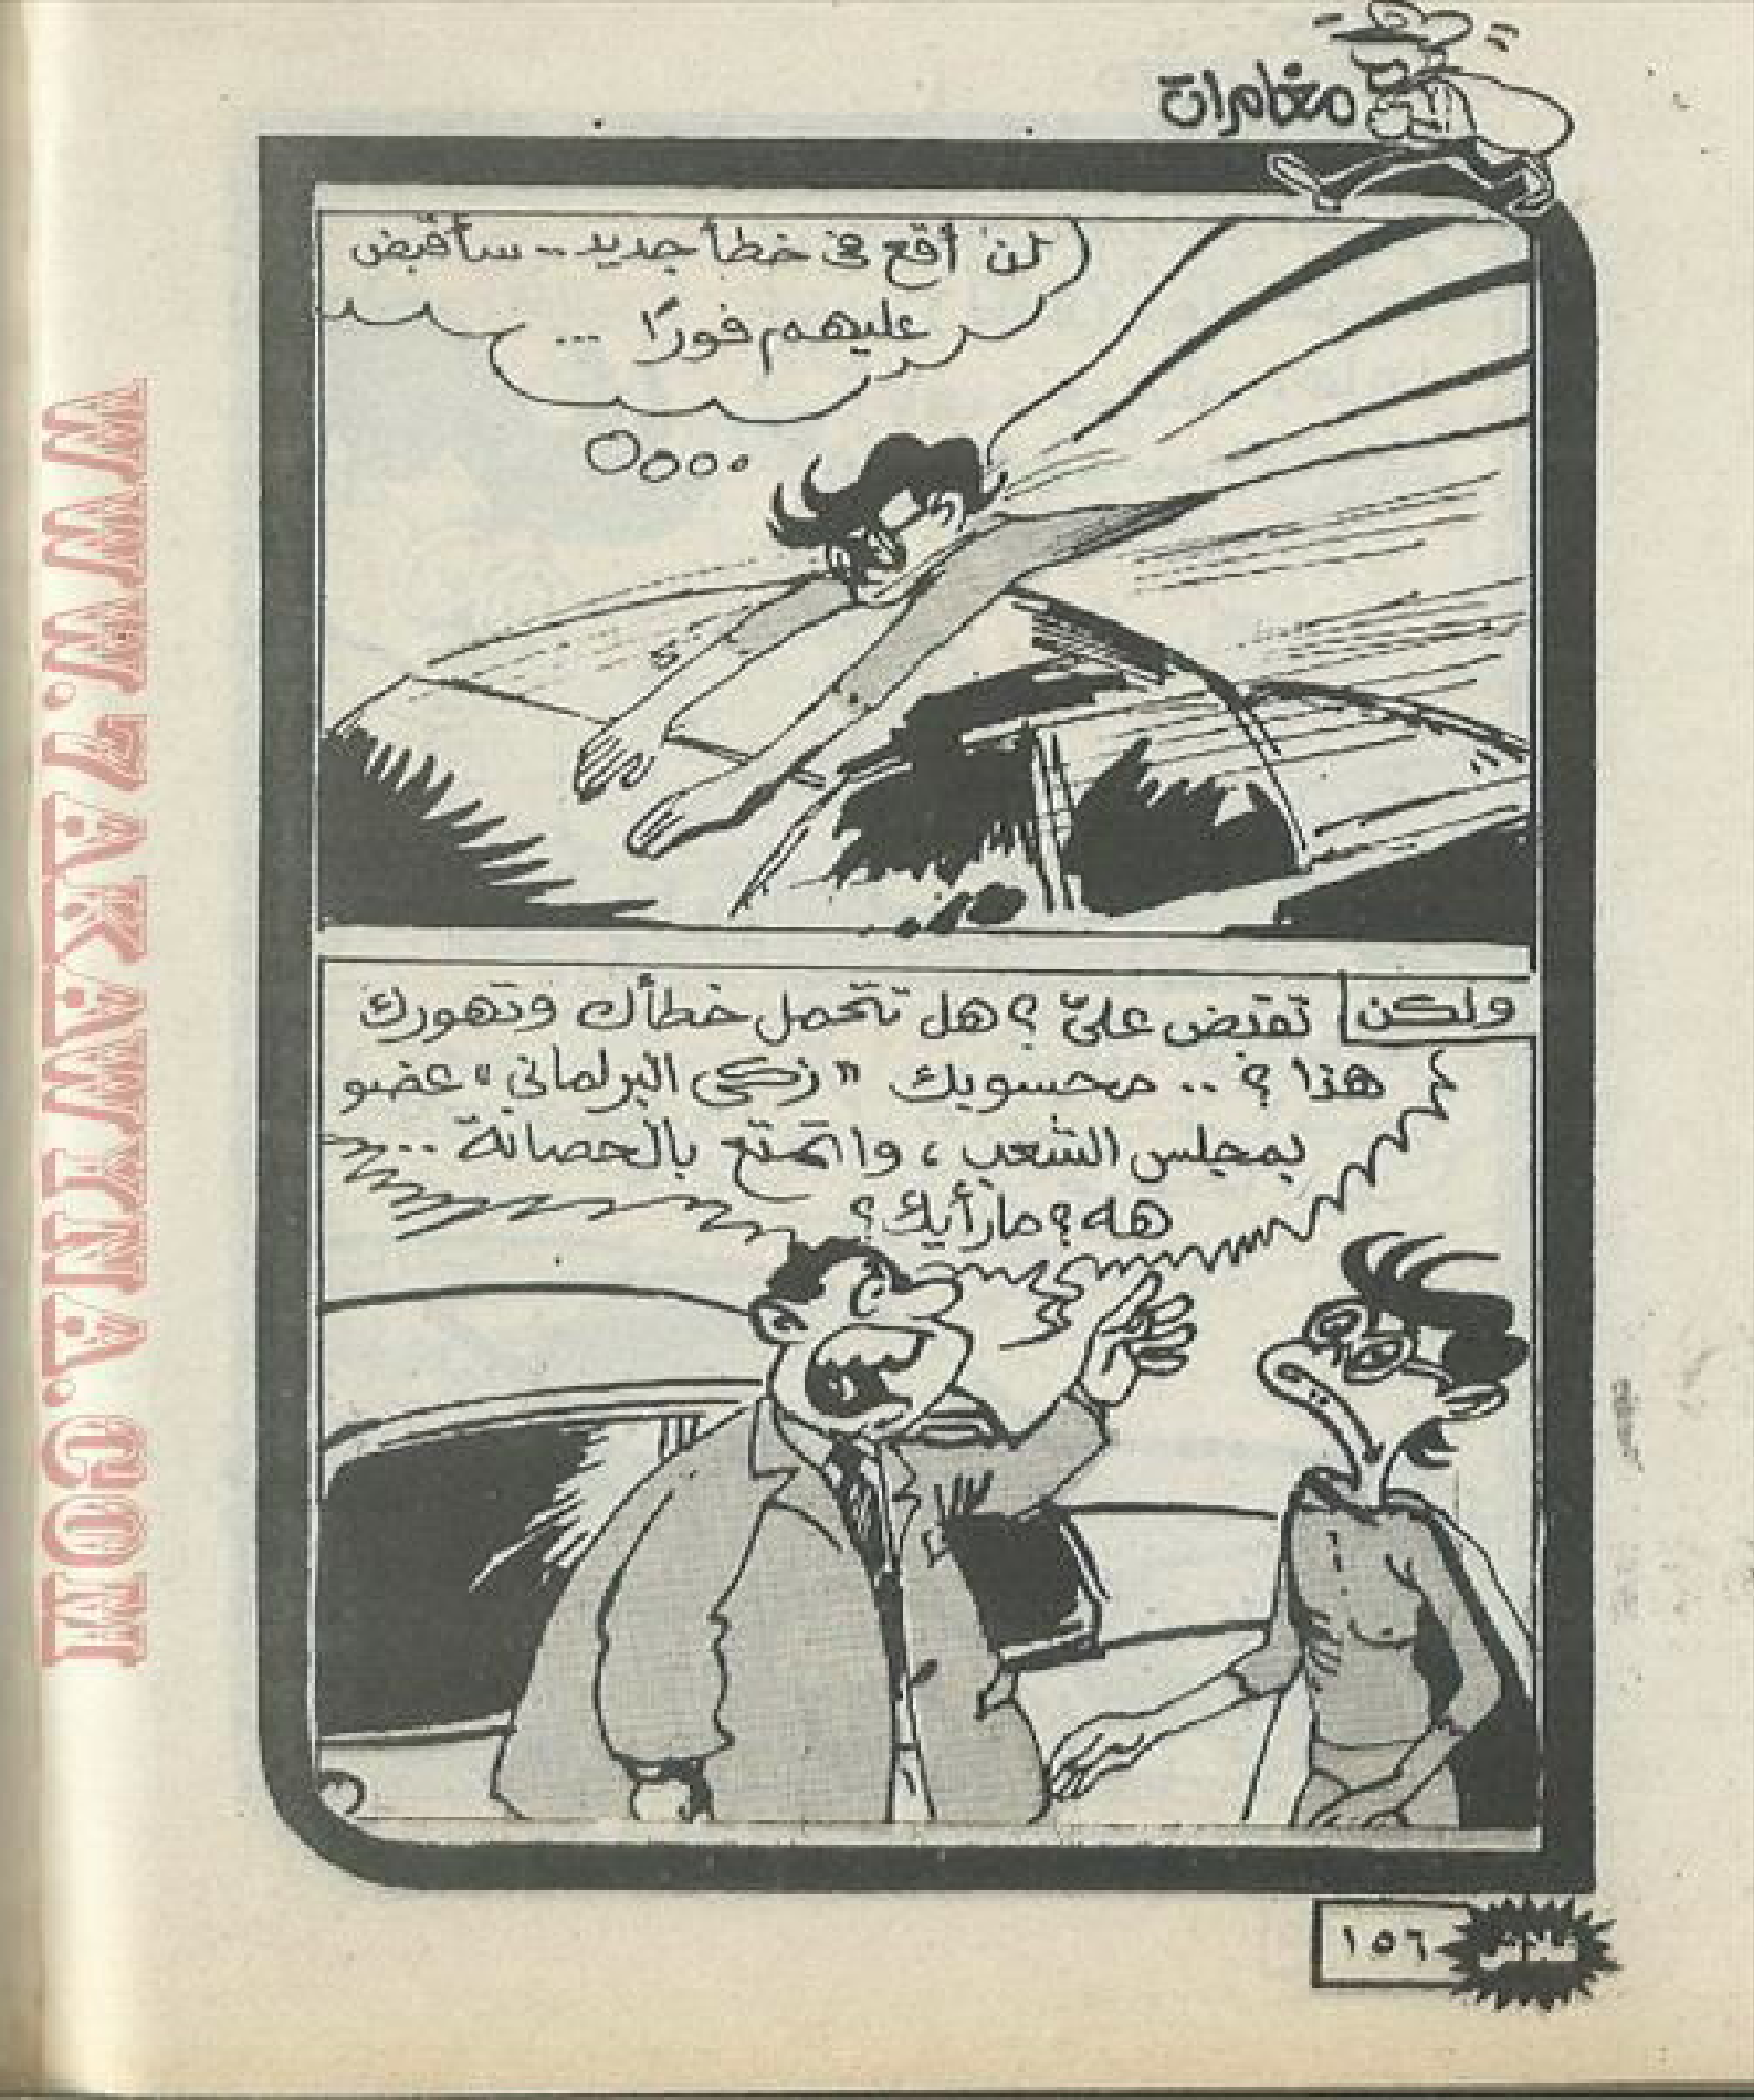 مغامرات
لن أقع فى خطأ جديد -- سأقبض
عليهم فورًا ...
ولكن
تقبض علىّ ؟ هل تتحمل خطأك وتهورك
هذا ؟ .. محسوبك "زكى البرلمانى" عضو
بمجلس الشعب ، واتمتع بالحصانة ...
هه ؟ مارأيك ؟
١٥٦
WWW.7AKAWTNA.COM